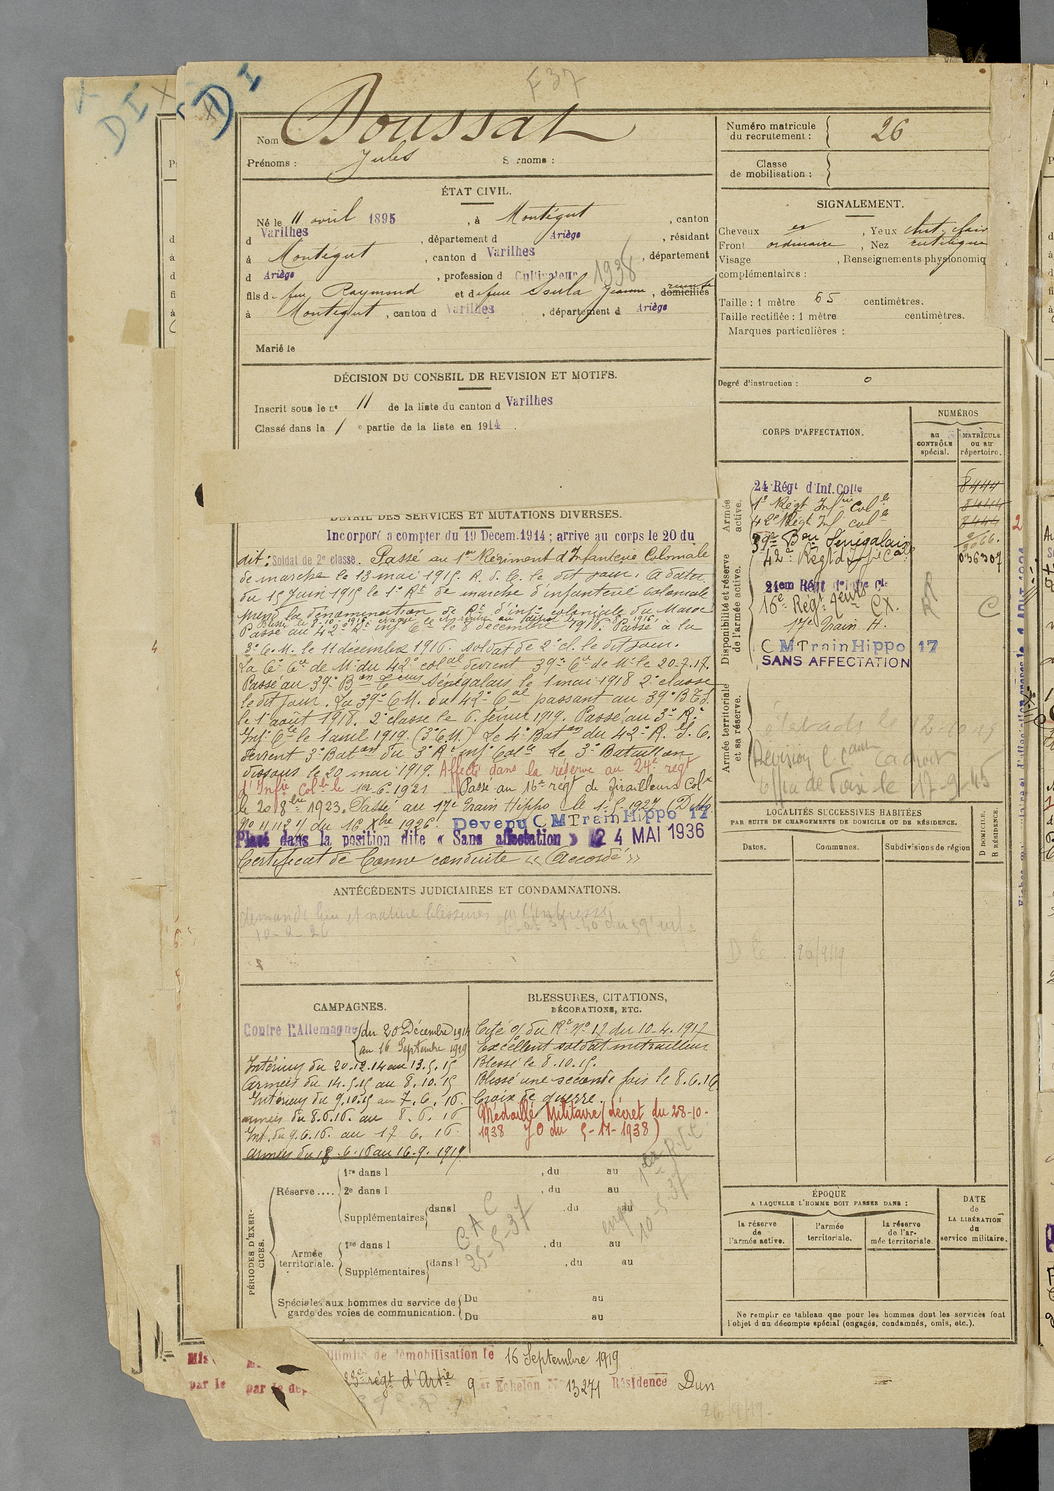 F 37
Nom Doussat
Prénoms : Jules Surnoms :
Numéro matricule du recrutement : 26
Classe de mobilisation :
ÉTAT CIVIL.
Né le 11 avril 1895, à Montégut, canton
d Varilhes, département d Ariège, résidant
à Montégut, canton d Varilhes, département
d Ariège, profession d Cultivateur 1938
fils de feu Raymond et de feue Jeanne, domiciliés
à Montégut, canton d Varilhes, département d Ariège
Marié le
SIGNALEMENT.
Cheveux Yeux
Front ordinaire, Nez rectiligne
Visage , Renseignements physionomiq
complémentaires :
Taille : 1 mètre 65 centimètres.
Taille rectifiée : 1 mètre centimètres.
Marques particulières :
Degré d'instruction : 0
DÉCISION DU CONSEIL DE REVISION ET MOTIFS.
Inscrit sous le n° 11 de la liste du canton d Varilhes
Classé dans la 1 e partie de la liste en 1914.
CORPS D'AFFECTATION.
NUMÉROS
au CONTRÔLE spécial.
MATRICULE ou au répertoire.
Armée active.
24 Régt d'Inf. Colle
8444
1er Régt Infrie Colle
42e Régt Inf colle
39e Bon Sénégalais
42e Régt d'Inf Cale
036307
Disponibilité et réserve de l'armée active.
24em Régt
16e Régt
17e Train H.
C M Train Hippo 17
SANS AFFECTATION
Armée territoriale et sa réserve.
DÉTAIL DES SERVICES ET MUTATIONS DIVERSES.
Incorporé à compter du 19 Décem. 1914 ; arrivé au corps le 20 du
dit : Soldat de 2e classe. Passé au 1er Régiment d'Infanterie Coloniale
de marche le 13 mai 1915. A dater
du 15 Juin 1915 le 1er Rt de marche d'infanterie coloniale
prend la dénomination de Rt d'infie coloniale du Maroc
Passé au 42e Rt infie Cle le 8 décembre 1916. Passé à la
3e C. M. le 11 décembre 1916. soldat de 2e cl. le dit jour.
La 6e Cie de Mse du 42e colal devient 39e Cie de Mse le 20-7-17.
Passé au 39e Bon Sénégalais le 1 mai 1918 2e classe
le dit jour. La 39e C.M. du 42e Cal passant au 39e B.T.S.
le 1er août 1918. 2e classe le 6 février 1919. Passé au 3e Rt
Infie Cle le 1 avril 1919. (3e C.M.) Le 4e Baton du 42e R. I. C.
devient 3e Baton du 3e Rt infie Cale Le 3e Bataillon
dissous le 20 mai 1919. Affecté dans la réserve au 24e régt
d'Infie Colle le 1er 6.1921 Passé au 16e régt de Tirailleurs Colx
le 20 8bre 1923. Passé au 17e Train Hippo le 1.5.1927
du 16 Xbre 1926. Devenu C M Train Hippo 17
Placé dans la position dite « Sans affectation » 24 MAI 1936
Certificat de bonne conduite « Accordé »
ANTÉCÉDENTS JUDICIAIRES ET CONDAMNATIONS.
LOCALITÉS SUCCESSIVES HABITÉES
PAR SUITE DE CHANGEMENTS DE DOMICILE OU DE RÉSIDENCE.
Dates. Communes. Subdivisions de région D DOMICILE. R RÉSIDENCE.
CAMPAGNES.
Contre l'Allemagne du 20 Décembre 1914
au 16 Septembre 1919
Intérieur du 20.12.14 au 13.5.15
Armées du 14.5.15 au 8.10.15
Intérieur du 9.10.15 au 7.6.16
armées du 8.6.16 au 8.6.16
Int. du 9.6.16 au 17.6.16
Armées du 18.6.16 au 16.9.1919
BLESSURES, CITATIONS, DÉCORATIONS, ETC.
Cité o/ du Rt n° 17 du 10.4.1917
Excellent soldat mitrailleur
Blessé le 8.10.15.
Blessé une seconde fois le 8.6.16
Croix de guerre.
Médaille Militaire (décret du 28-10-
1938 JO du 5-11-1938)
PÉRIODES D'EXERCICES.
Réserve ....
1re dans l , du au
2e dans l , du au
Supplémentaires dans l , du au
Armée territoriale.
1re dans l , du au
Supplémentaires dans l , du au
Spéciales aux hommes du service de garde des voies de communication.
Du au
Du au
CAC
25-5-37
10-5-37
ÉPOQUE
A LAQUELLE L'HOMME DOIT PASSER DANS :
la réserve de l'armée active.
l'armée territoriale.
la réserve de l'armée territoriale.
DATE de LA LIBÉRATION du service militaire.
Ne remplir ce tableau que pour les hommes dont les services font
l'objet d'un décompte spécial (engagés, condamnés, omis, etc.).
illimité de démobilisation le 16 Septembre 1919
par le par le dép 23e régt d'Artie 9 er Echelon N° 13271 Résidence Dun